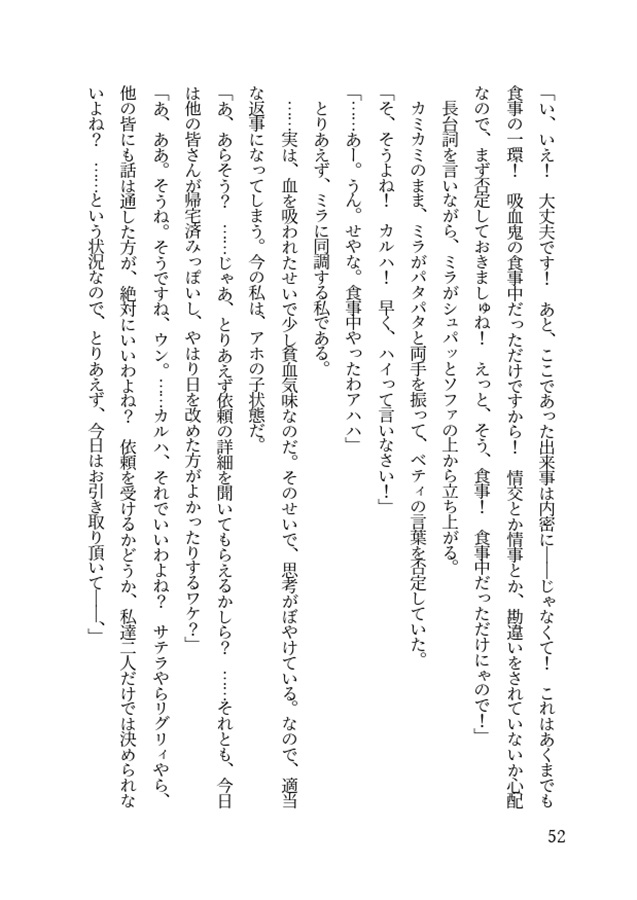 「い、いえ！　大丈夫です！　あと、ここであった出来事は内密に――じゃなくて！　これはあくまでも
食事の一環！　吸血鬼の食事中だっただけですから！　情交とか情事とか、勘違いをされていないか心配
なので、まず否定しておきましゅね！　えっと、そう、食事！　食事中だっただけにゃので！」
長台詞を言いながら、ミラがシュパッとソファの上から立ち上がる。
カミカミのまま、ミラがパタパタと両手を振って、ベティの言葉を否定していた。
「そ、そうよね！　カルハ！　早く、ハイって言いなさい！」
「……あー。うん。せやな。食事中やったわアハハ」
とりあえず、ミラに同調する私である。
……実は、血を吸われたせいで少し貧血気味なのだ。そのせいで、思考がぼやけている。なので、適当
な返事になってしまう。今の私は、アホの子状態だ。
「あ、あらそう？　……じゃあ、とりあえず依頼の詳細を聞いてもらえるかしら？　……それとも、今日
は他の皆さんが帰宅済みっぽいし、やはり日を改めた方がよかったりするワケ？」
「あ、ああ。そうね。そうですね、ウン。……カルハ、それでいいわよね？　サテラやらリグリィやら、
他の皆にも話は通した方が、絶対にいいわよね？　依頼を受けるかどうか、私達二人だけでは決められな
いよね？　……という状況なので、とりあえず、今日はお引き取り頂いて――、」
52